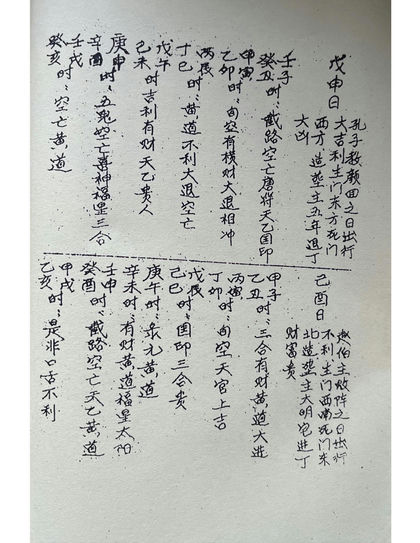 戊申日
孔子教顏回之日出行
大吉利生门东方死门
西方造塟主五年退丁
大凶
壬子
癸丑时：截路空亡唐符天乙国印
甲寅
乙卯时：旬空有横财大退相冲
丙辰
丁巳时：黄道不利大退空亡
戊午
己未时吉利有财天乙贵人
庚申
辛酉时：五鬼空亡喜神福星三合
壬戌
癸亥时：空亡黄道
己酉日
赵伯主败阵之日出行
不利生门西南死门东
北造塟主大明宅进丁
财富贵
甲子
乙丑时：三合有财黄道大进
丙寅
丁卯时：旬空天官上吉
戊辰
己巳时：国印三合贵
庚午时：元黄道
辛未时：有财黄道福星太阳
壬申时
癸酉时：截路空亡天乙黄道
甲戌
乙亥时：是非口舌不利